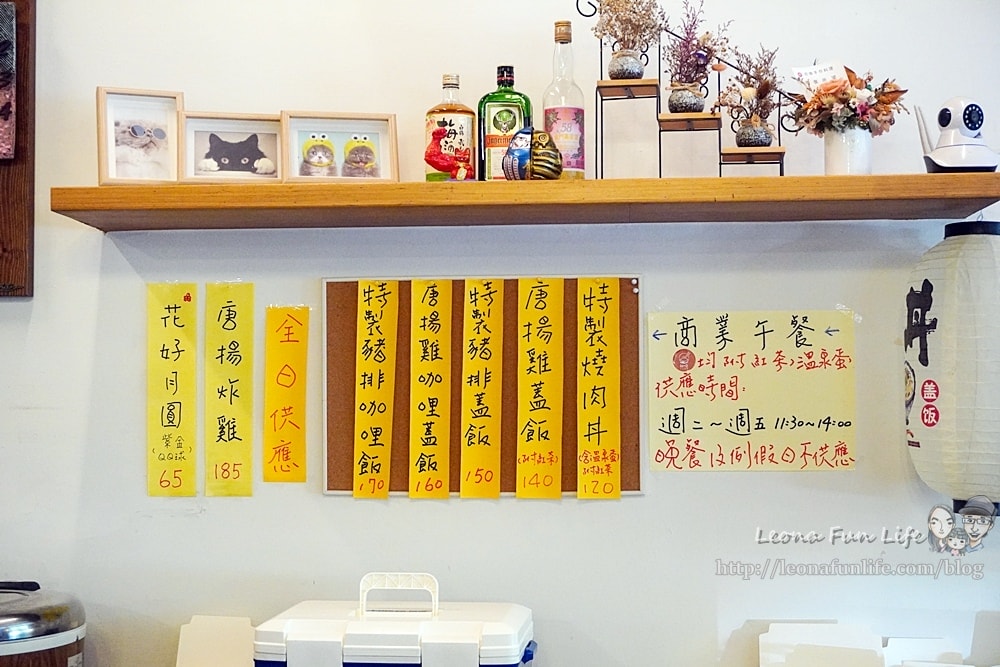 花好月圓
紫金
(QQ球)
65
唐揚炸雞
185
全日供應
特製豬排咖哩飯
170
唐揚雞咖哩蓋飯
160
特製豬排蓋飯
150
唐揚雞蓋飯
(附紅茶)
140
特製燒肉丼
(含溫泉蛋)
附紅茶
120
←商業午餐←
均附紅茶、溫泉蛋
供應時間:
週二~週五 11:30~14:00
晚餐及例假日不供應
梅酒
58
丼
盖饭
Leona Fun Life
http://leonafunlife.com/blog